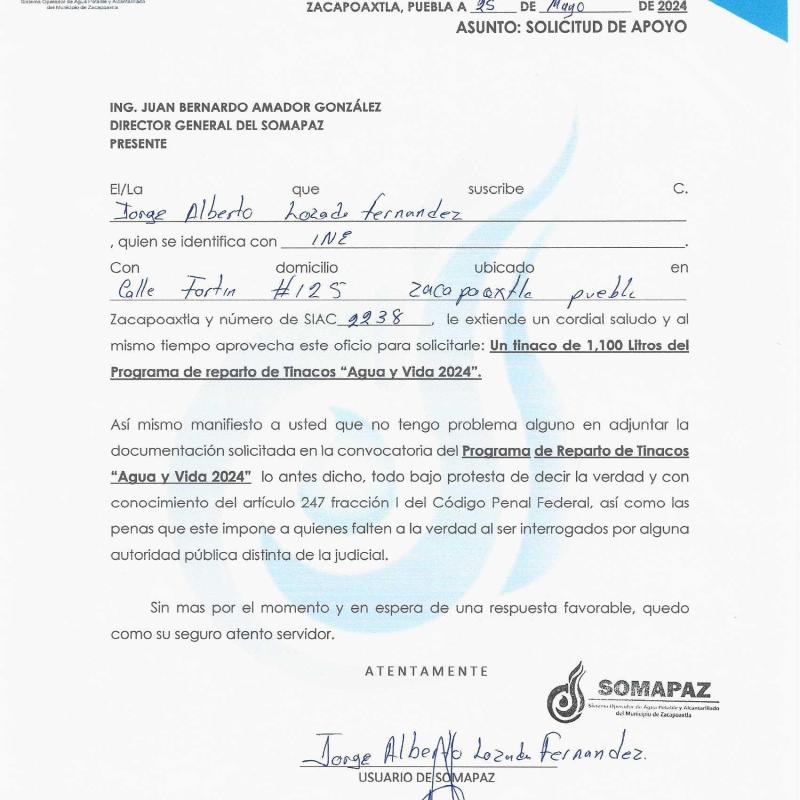 Sistema Operador de Agua Potable y Alcantarillado
del Municipio de Zacapoaxtla
ZACAPOAXTLA, PUEBLA A 25 DE Mayo DE 2024
ASUNTO: SOLICITUD DE APOYO
ING. JUAN BERNARDO AMADOR GONZÁLEZ
DIRECTOR GENERAL DEL SOMAPAZ
PRESENTE
El/La que suscribe C.
Jorge Alberto Lozada fernandez
, quien se identifica con INE.
Con domicilio ubicado en
Calle Fortin #125 Zacapoaxtla puebla
Zacapoaxtla y número de SIAC 2238, le extiende un cordial saludo y al
mismo tiempo aprovecha este oficio para solicitarle: Un tinaco de 1,100 Litros del
Programa de reparto de Tinacos “Agua y Vida 2024”.
Así mismo manifiesto a usted que no tengo problema alguno en adjuntar la
documentación solicitada en la convocatoria del Programa de Reparto de Tinacos
“Agua y Vida 2024” lo antes dicho, todo bajo protesta de decir la verdad y con
conocimiento del artículo 247 fracción I del Código Penal Federal, así como las
penas que este impone a quienes falten a la verdad al ser interrogados por alguna
autoridad pública distinta de la judicial.
Sin mas por el momento y en espera de una respuesta favorable, quedo
como su seguro atento servidor.
ATENTAMENTE
SOMAPAZ
Sistema Operador de Agua Potable y Alcantarillado
del Municipio de Zacapoaxtla
Jorge Alberto Lozada Fernandez.
USUARIO DE SOMAPAZ